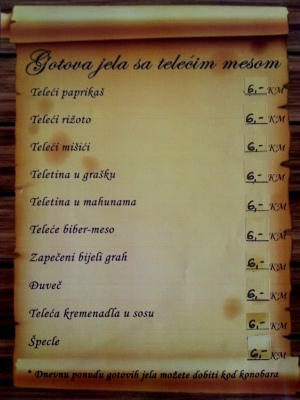 Gotova jela sa telećim mesom
Teleći paprikaš 6,- KM
Teleći rižoto 6,- KM
Teleći mišići 6,- KM
Teletina u grašku 6,- KM
Teletina u mahunama 6,- KM
Teleće biber-meso 6,- KM
Zapečeni bijeli grah 6,- KM
Đuveč 6,- KM
Teleća kremenadla u sosu 6,- KM
Špecle 6,- KM
* Dnevnu ponudu gotovih jela možete dobiti kod konobara